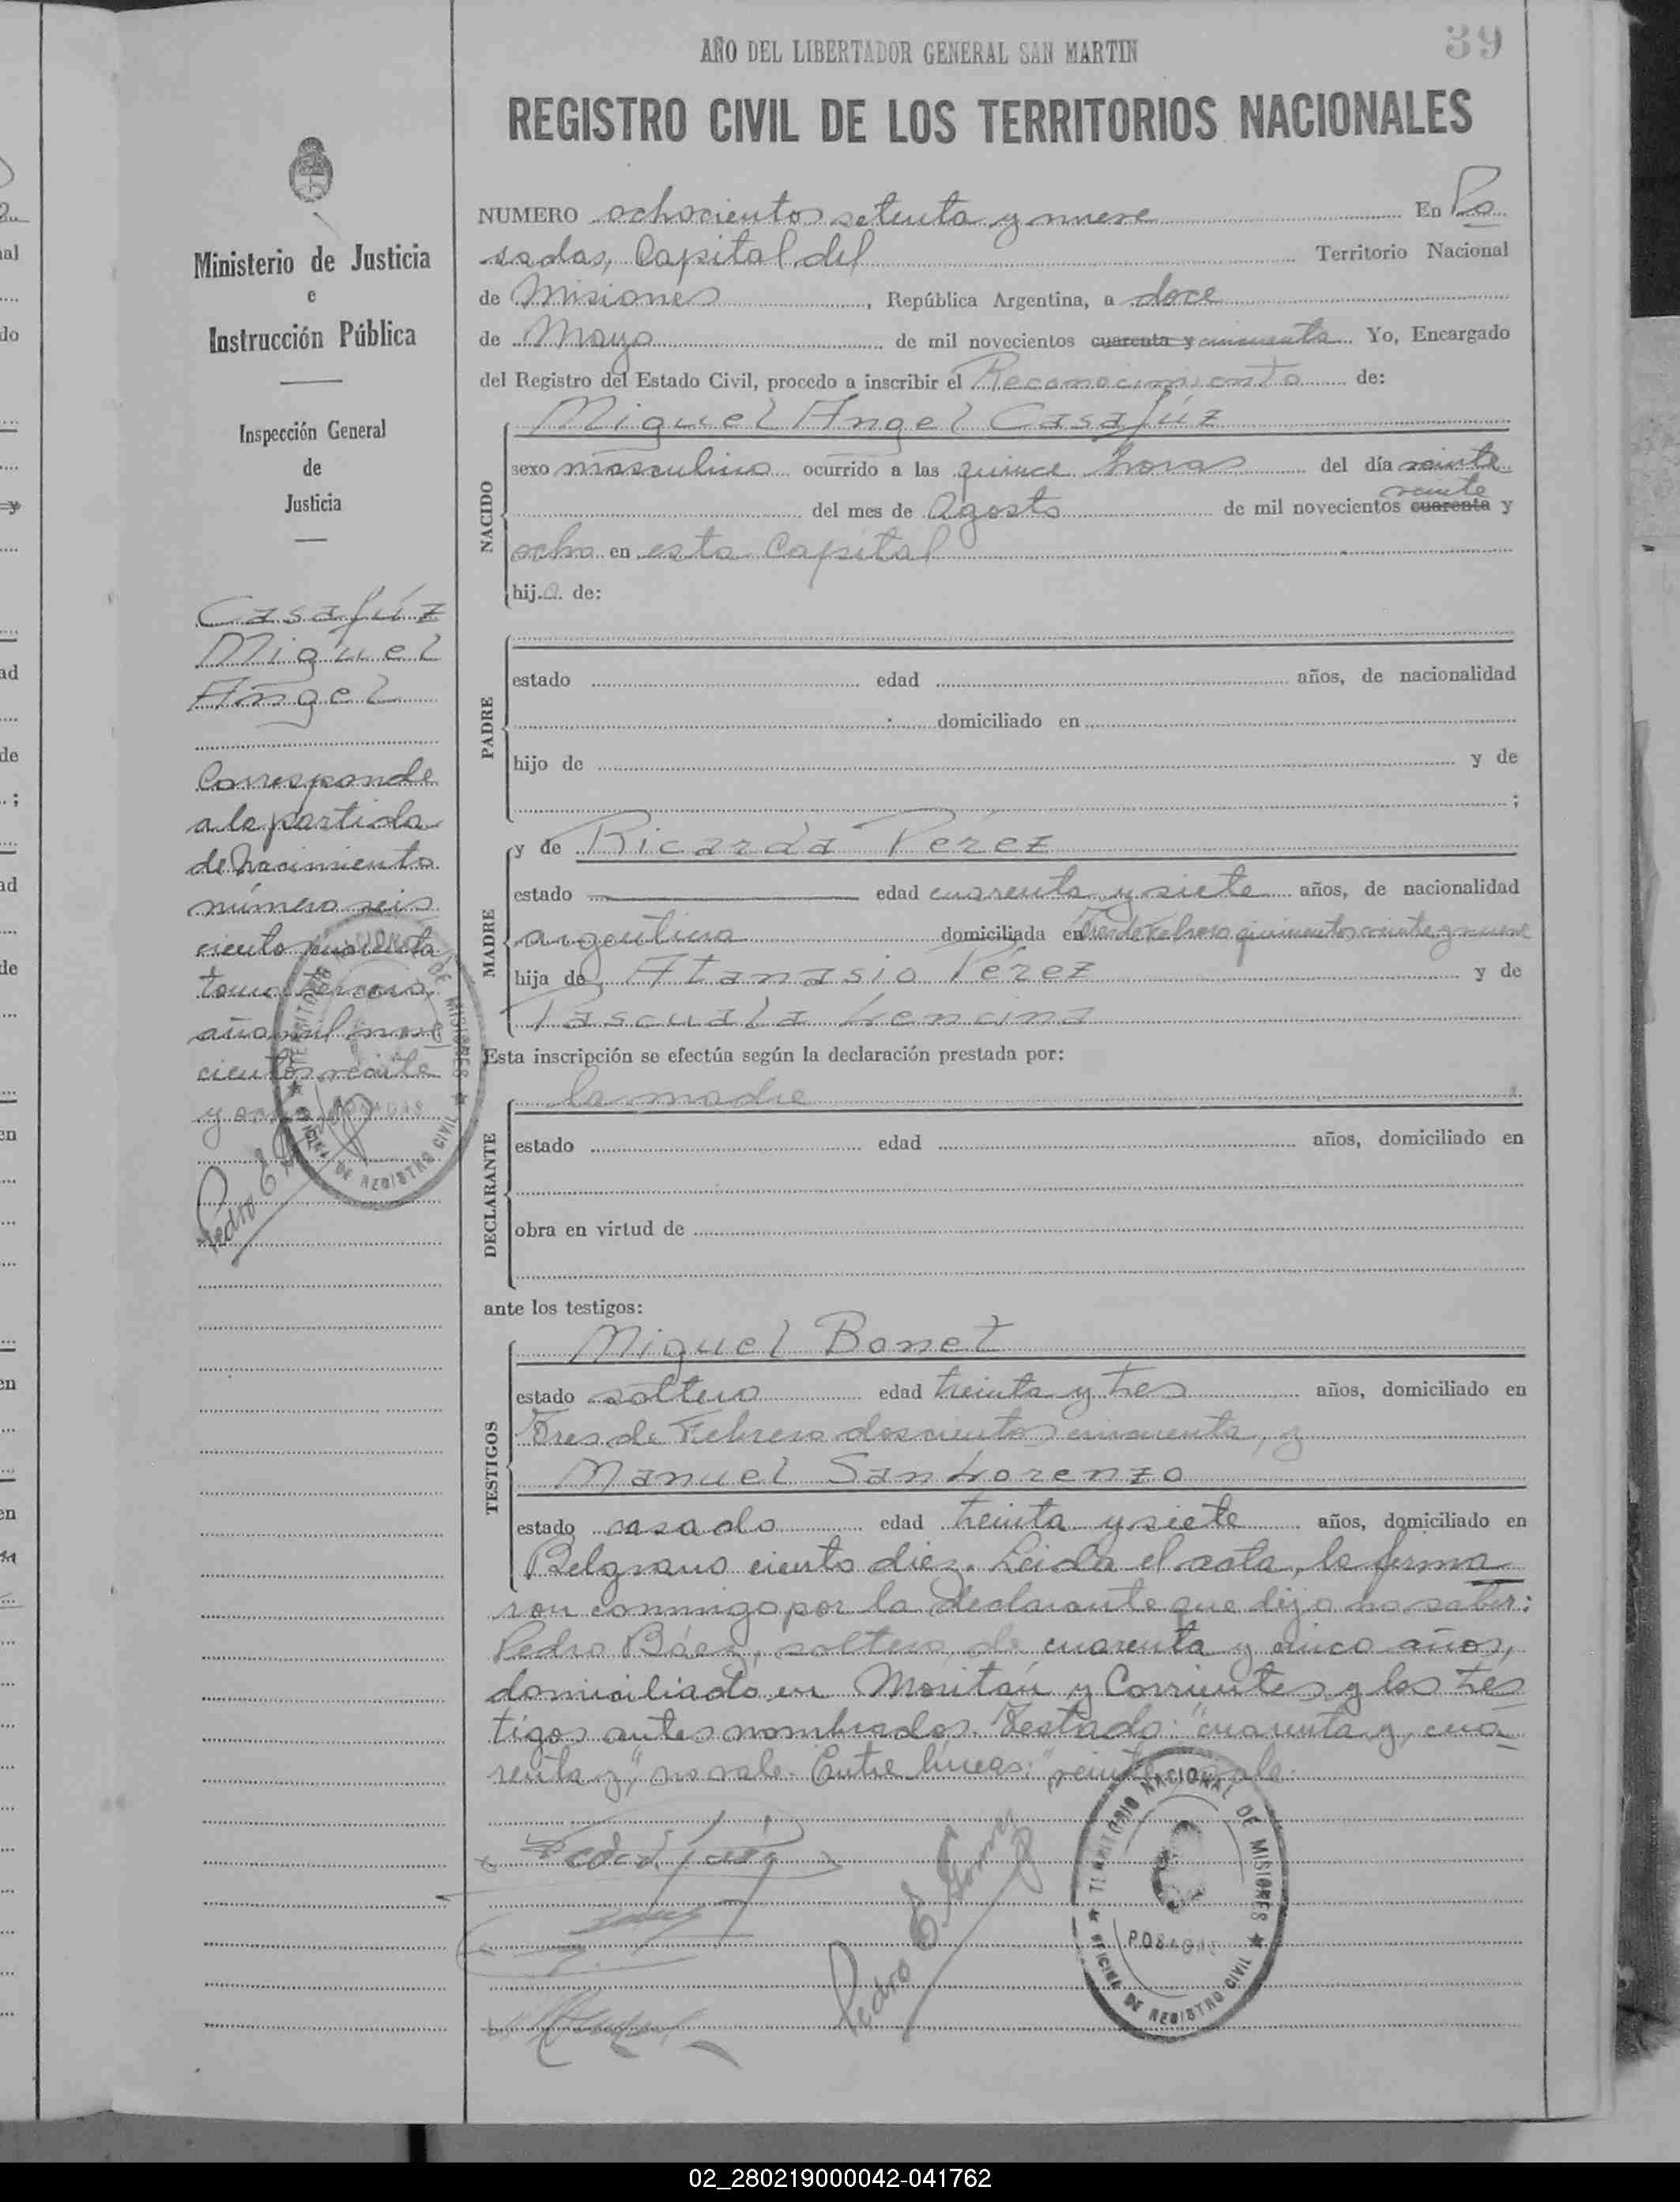 39
AÑO DEL LIBERTADOR GENERAL SAN MARTIN
REGISTRO CIVIL DE LOS TERRITORIOS NACIONALES
Ministerio de Justicia
e
Instrucción Pública
Inspección General
de
Justicia
Casafúz
Miguel
Angel
Corresponde
a la partida
de nacimiento
número seis
ciento
tomo tercero,
año mil nove
cientos veinte
y ocho
Pedro E. Gomez
NUMERO ochocientos setenta y nueve En Po
sadas, Capital del Territorio Nacional
de Misiones, República Argentina, a doce
de Mayo de mil novecientos cuarenta y cincuenta Yo, Encargado
del Registro del Estado Civil, procedo a inscribir el Reconocimiento de:
NACIDO
Miguel Angel Casafúz
sexo masculino ocurrido a las quince horas del día veinte
veinte
del mes de Agosto de mil novecientos cuarenta y
ocho en esta Capital
hijo de:
PADRE
estado edad años, de nacionalidad
domiciliado en
hijo de y de
;
MADRE
y de Ricarda Pérez
estado edad cuarenta y siete años, de nacionalidad
argentina domiciliada en Tres de Febrero quinientos veinte y nueve
hija de Atanasio Pérez y de
Pascuala Lencina
Esta inscripción se efectúa según la declaración prestada por:
DECLARANTE
la madre
estado edad años, domiciliado en
obra en virtud de
ante los testigos:
TESTIGOS
Miguel Bonet
estado soltero edad treinta y tres años, domiciliado en
Tres de Febrero doscientos cincuenta, y
Manuel San Lorenzo
estado casado edad treinta y siete años, domiciliado en
Belgrano ciento diez. Leida el acta, la firma
ron conmigo por la declarante que dijo no saber:
Pedro Báez, soltero, de cuarenta y cinco años,
domiciliado en Moritán y Corrientes y los tes
tigos antes nombrados. Testado: "cuarenta y, cua
renta y," no vale. Entre líneas: "veinte" vale.
Pedro E. Gomez
TERRITORIO NACIONAL DE MISIONES
POSADAS
OFICINA DE REGISTRO CIVIL
02_280219000042-041762